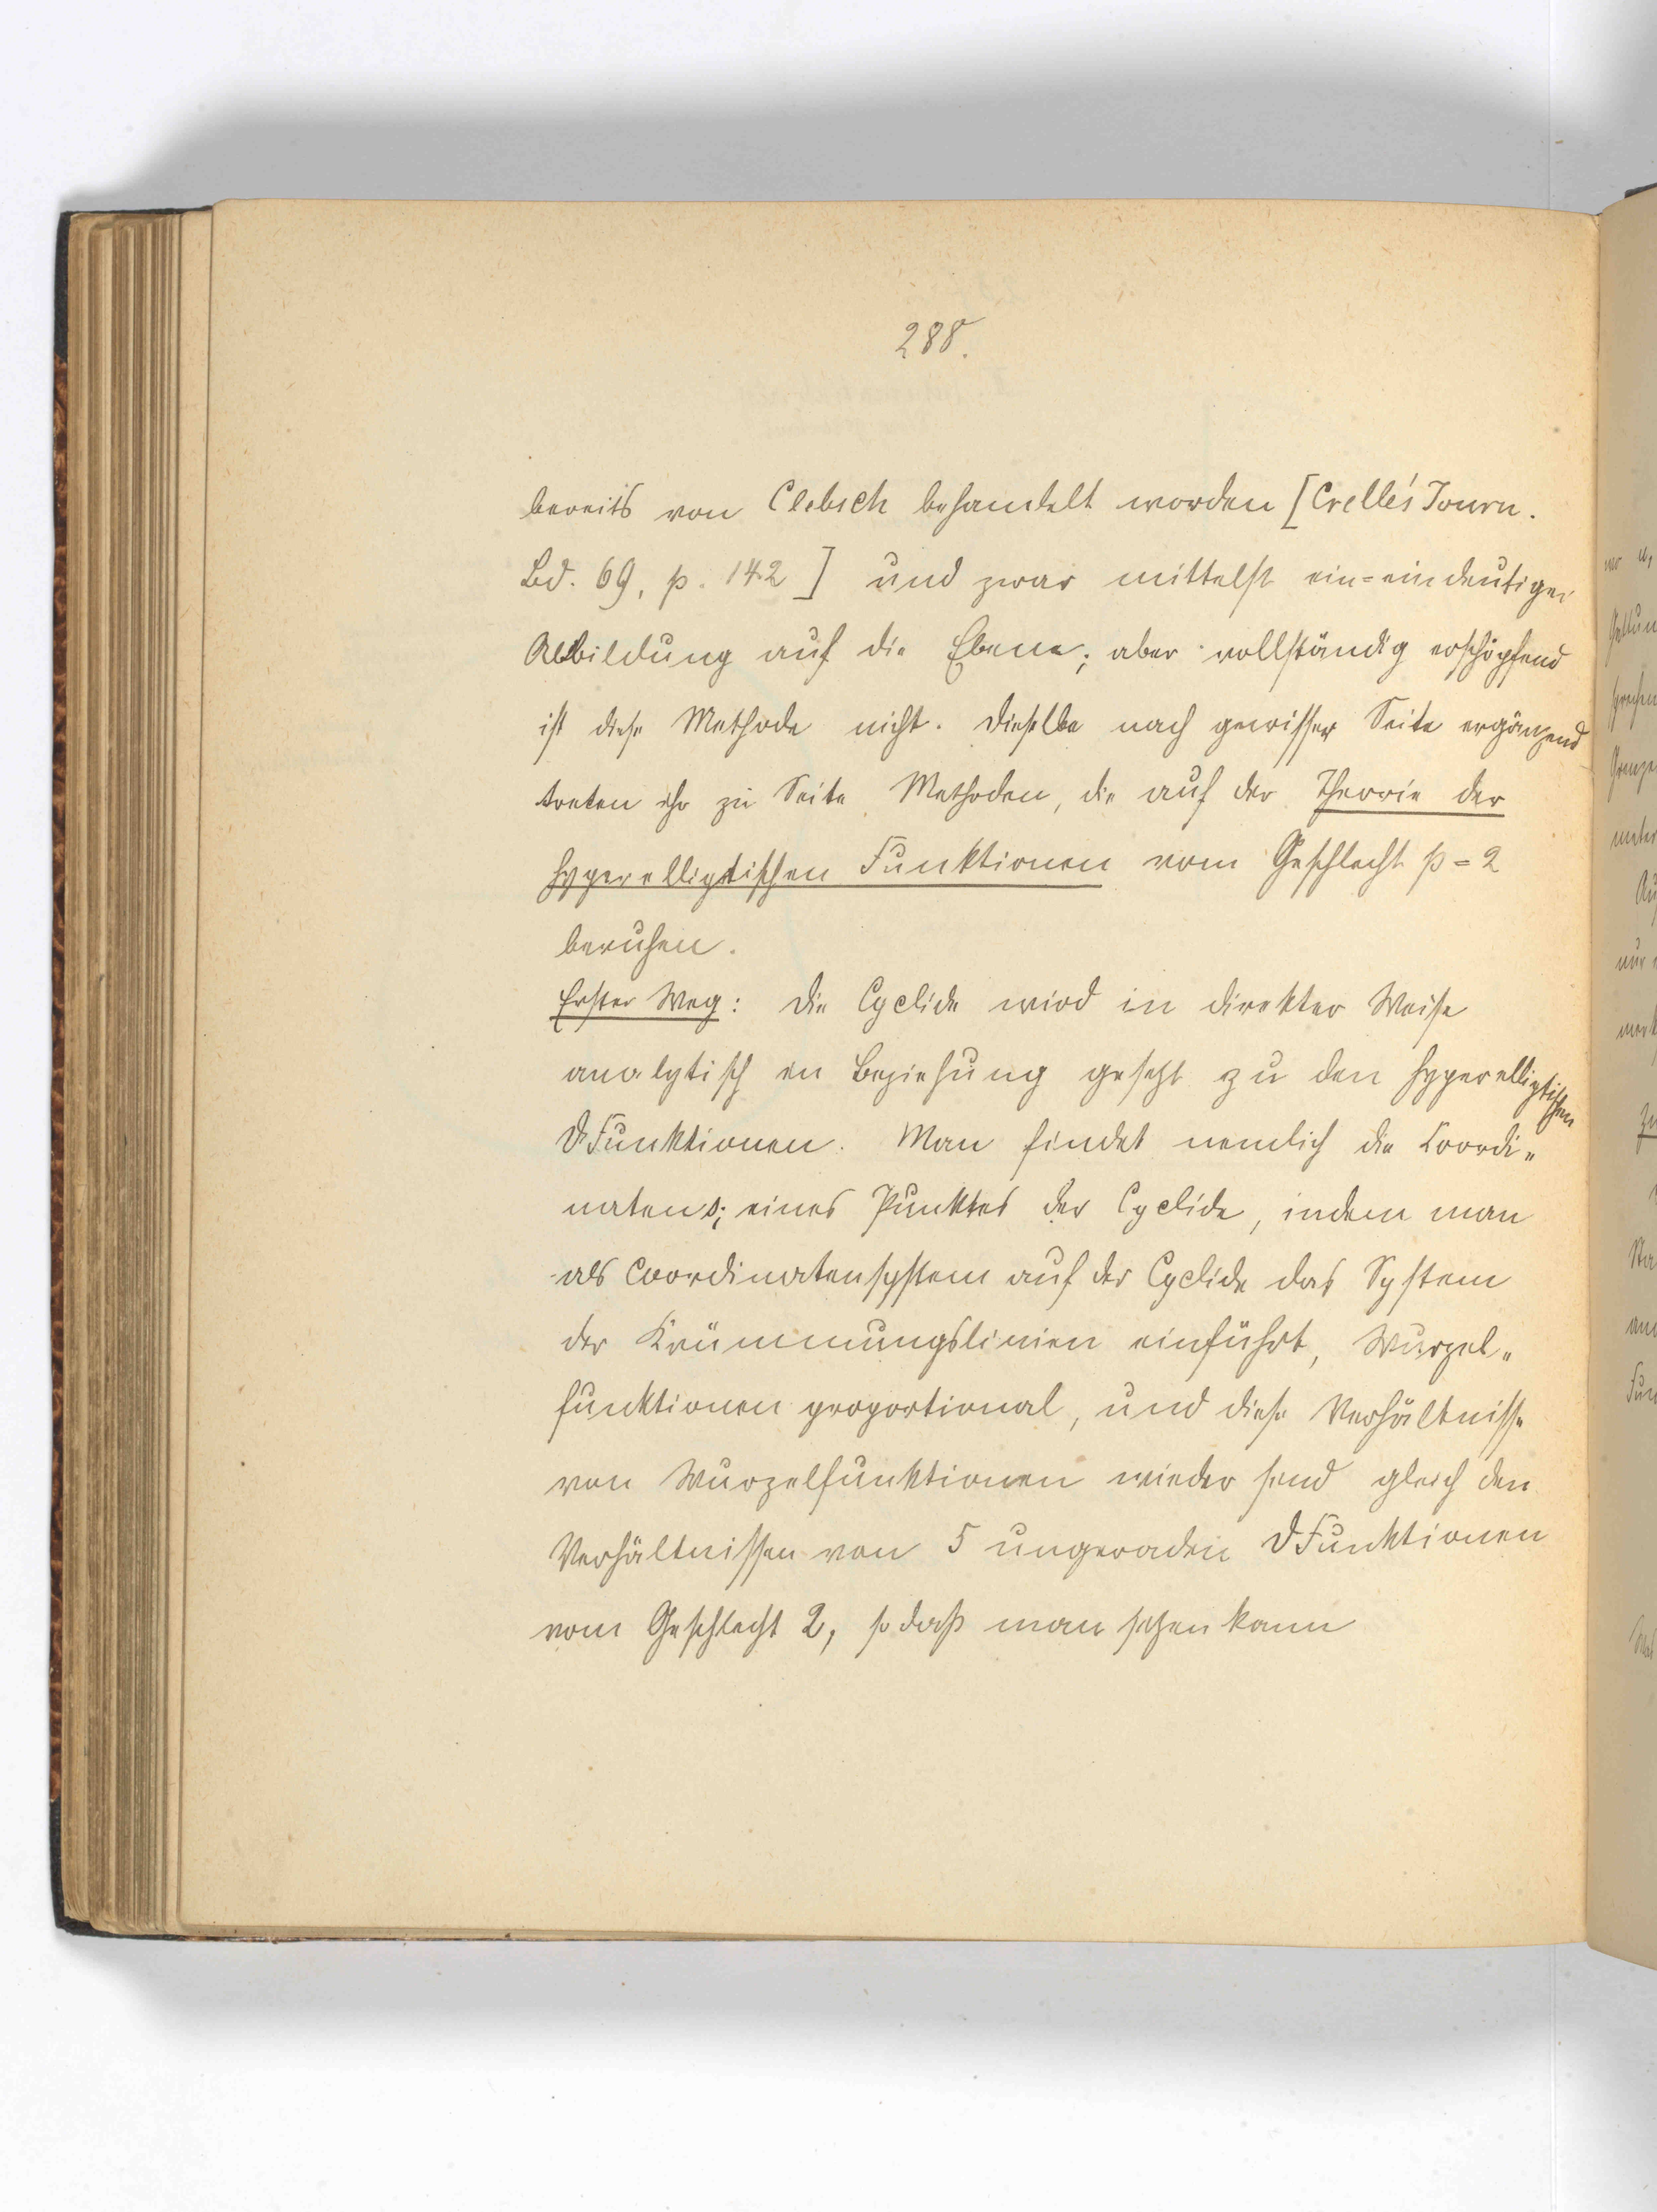 288.
bereits von Clebsch behandelt worden [Crelle's Journ.
Bd. 69, p. 142] und zwar mittelst ein=eindeutiger
Abbildung auf die Ebene; aber vollständig erschöpfend
ist diese Methode nicht. Dieselbe nach gewisser Seite ergänzend
treten ihr zu Seite Methoden, die auf der Theorie der
hyperelliptischen Funktionen vom Geschlecht p = 2
beruhen.
Erster Weg: Die Cyclide wird in direkter Weise
analytisch in Beziehung gesetzt zu den hyperelliptischen
ϑFunktionen. Man findet nemlich die Coordi-
naten s; eines Punktes der Cyclide, indem man
als Coordinatensystem auf der Cyclide das System
der Krümmungslinien einführt, Wurzel-
funktionen proportional, und diese Verhältnisse
von Wurzelfunktionen wieder sind gleich den
Verhältnissen von 5 ungeraden ϑFunktionen
vom Geschlecht 2, so daß man setzen kann